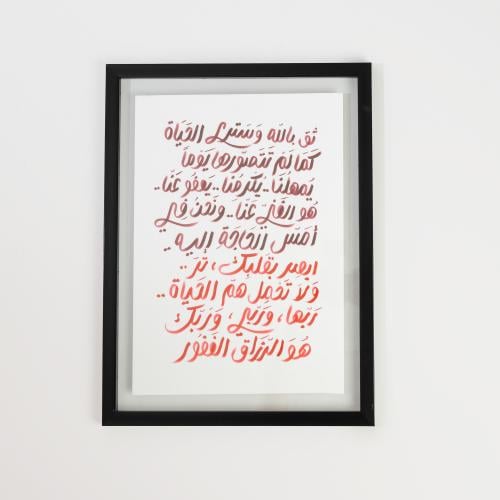 ثق بالله وَسَترى الحَيَاة
كمَا لم تَتَصوّرها يَوماً
يُمهلنَا.. يُكرمُنَا.. يَعفُو عَنّا..
هُو الغَنيّ عَنّا.. ونَحنُ فِي
أمَسّ الحَاجَةِ إليهِ..
ابصر بقَلبِك، تَر..
وَلَا تَحَمِل هَمّ الحَيَاة..
رَبّها، وَرَبّي، وَرَبّك
هُوَ الرّزاق الغَفُور